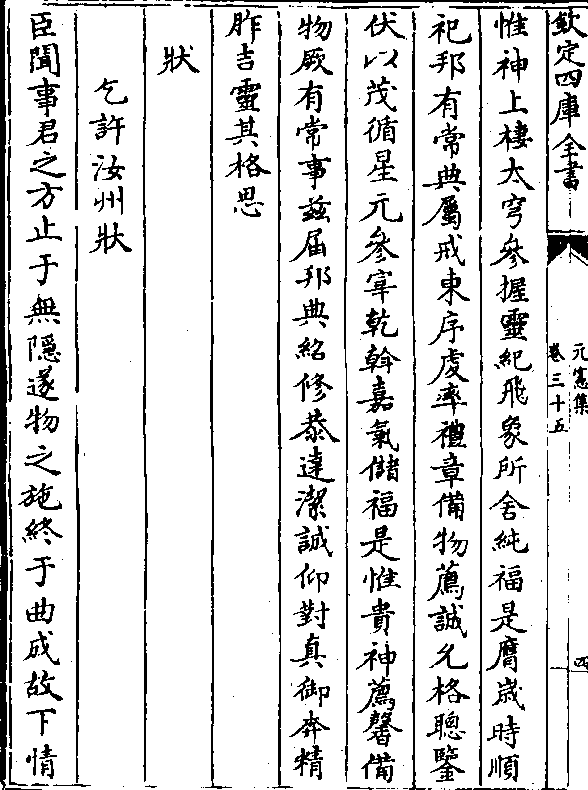 欽定四庫全書
元憲集
卷三十五
四
惟神上棲太穹參握靈紀飛象所舍純福是膺歲時順
祀邦有常典屬戒東序虔率禮章備物薦誠允格聰鑒
伏以茂循星元參宰乾斡嘉氣儲福是惟貴神薦馨備
物厥有常事茲届邦典紹修恭達潔誠仰對真御奔精
胙吉靈其格思
狀
乞許汝州狀
臣聞事君之方止于無隱遂物之施終于曲成故下情